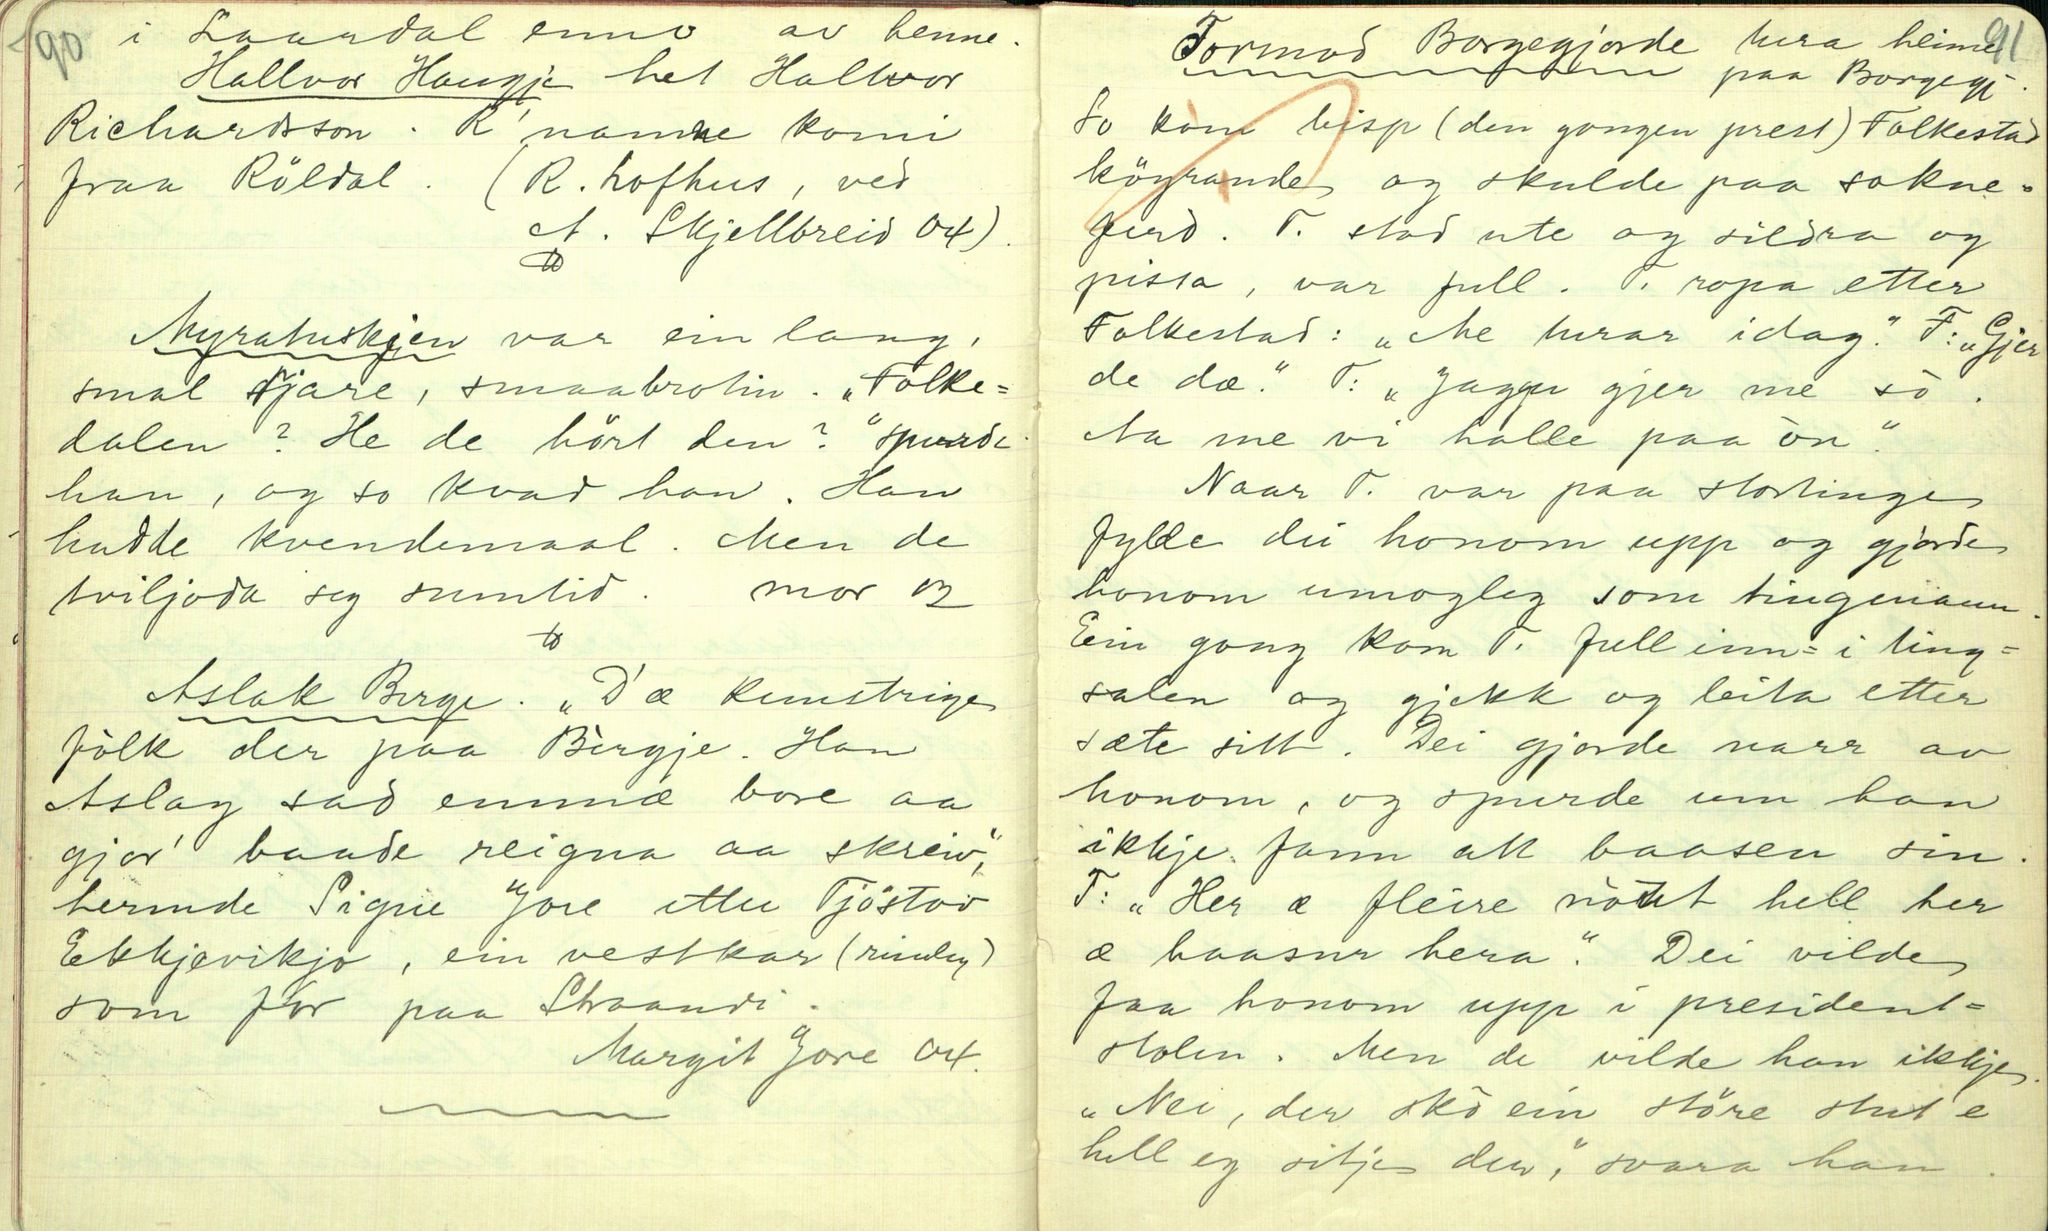 90
i Laardal enno av henne.
Hallvor Haugje het Hallvor
Richardsson. R' namne komi
fraa Röldal. (R. Lofthus, ved
A. Skjellbreid 04).
Myratuskjen var ein lang,
smal fjare, smaabrotin. „Folke=
dalen? He de hört den?" spurde
han, og so kvad han. Han
hadde kvendemaal. Men de
tviljoda seg sumtid. mor 03
Aslak Berge. „D'æ kunstrige
fölk der paa Bergje. Han
Aslag sad emmæ bore aa
gjor' baade reigna aa skreiv,"
hermde Signe Jore etter Tjöstov
Ekkjevikjo, ein vestkar
som for paa Straandi.
Margit Jore 04.
91
Tormod Borgegjorde tura heime
paa Borgegj.
So kom bisp (den gongen prest) Folkestad
köyrande og skulde paa sokne=
ferd. T. stod ute og sildra og
pissa, var full. T. ropa etter
Folkestad: „Me turar idag." F: „Gjer
de dæ." T: „Jaggu gjer me so.
Aa me vi halle paa òn."
Naar T. var paa stortinge
fylde dei honom upp og gjorde
honom umogleg som tingmann.
Ein gong kom T. full inn i ting=
salen og gjekk og leita etter
sæte sitt. Dei gjorde narr av
honom, og spurde um han
ikkje fann att baasen sin.
T: „Her æ fleire nòut hell her
æ baasur hera." Dei vilde
faa honom upp i president=
stolen. Men de vilde han ikkje.
„Nei, der skò ein störe stut e
hell eg sitje der," svara han.